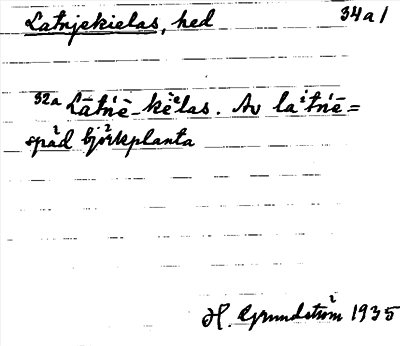 Latnjekielas, hed 34a1
32a Lātnē-kēelas. Av laitnē=
spåd björkplanta
H. Grundström 1935